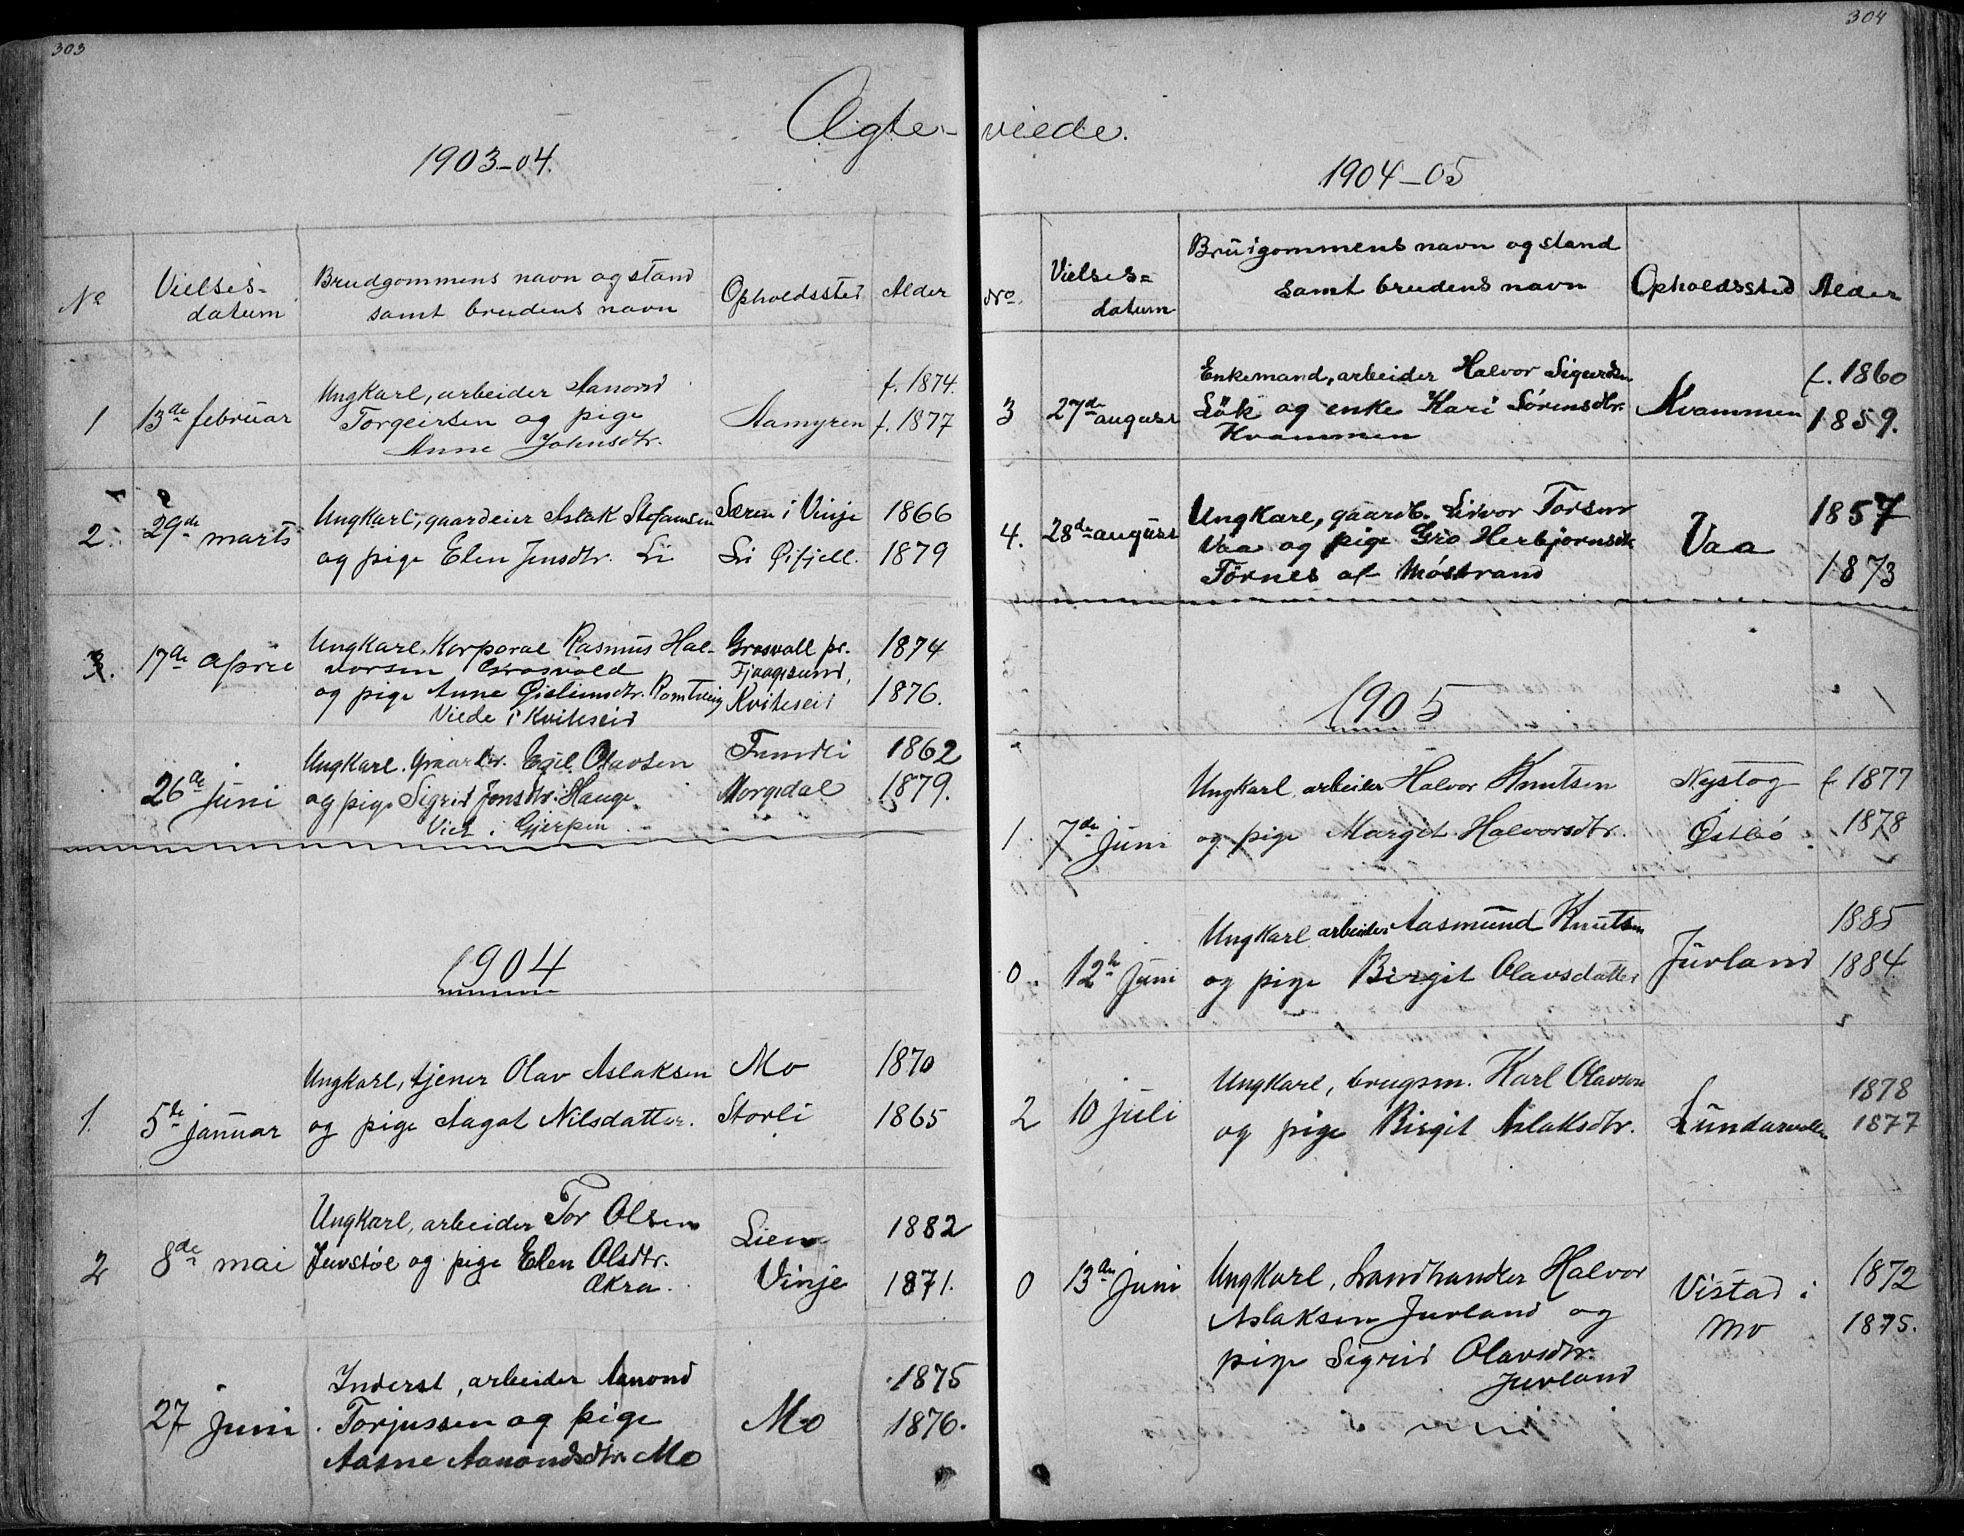 303
Ægte-
1903-04.
No
Vielses-
datum
Brudgommens navn og stand
samt brudens navn
Opholdssted
Alder
1
13de februar
Ungkarl, arbeider Aanond
Torgeirsen og pige
Anne Johnsdtr.
Aamyren
f. 1874.
f. 1877
2.
29de marts
Ungkarl, gaardeier Aslak Stefansen
og pige Elen Jensdtr. Li
Særen i Vinje
Li Øifjell.
1866
1879
3.
17de april
Ungkarl, Korporal Rasmus Hal-
vorsen Grosvold
og pige Anne Øisteinsdtr. Romtveig
Viede i Kviteseid
Grosvoll pr.
Fjaagesund,
Kviteseid
1874
1876.
26de juni
Ungkarl. Gaardbr. Egil Olavsen
og pige Sigrid Jonsdtr. Hauge
Viet i Gjerpen
Fundli
Morgedal
1862
1879.
1904
1.
5te januar
Ungkarl, tjener Olav Aslaksen
og pige Aagot Nilsdatter.
Mo
Storli
1870
1865
2
8de mai
Ungkarl, arbeider Tor Olsen
Juvstøl og pige Elen Olsdtr.
Økra.
Lien
Vinje
1882
1871.
27 juni
Inderst, arbeider Aanond
Torjussen og pige
Aasne Aanondsdtr. Mo
Mo
1875
1876.
304
viede.
1904-05
No.
Vielses=
datum
Bruigommens navn og stand
samt brudens navn
Opholdssted
Alder
3
27de august
Enkemand, arbeider Halvor Sigurdsen
Løk og enke Kari Sørensdtr.
Kvammen
Kvammen
f. 1860
1859.
4.
28de august
Ungkarl, gaardb. Livor Torsen
Vaa og pige Gro Herbjørnsdtr
Førnes af Møstrand
Vaa
1857
1873
1905
1.
7de Juni
Ungkarl arbeider Halvor Knutsen
og pige Margit Halvorsdtr.
Nystog
Østbø
f. 1877
1878
0.
12te Juni
Ungkarl arbeider Aasmund Knutsen
og pige Birgit Olavsdatter
Juvland
1885
1884
2
10 juli
Ungkarl, brugsm. Karl Olavsen
og pige Birgit Aslaksdtr.
Lundarvollen
1878
1877
0
13de Juni
Ungkarl, Landhandler Halvor
Aslaksen Juvland og
pige Sigrid Olavsdtr.
Juvland
Vistad i
Mo
1872
1875.